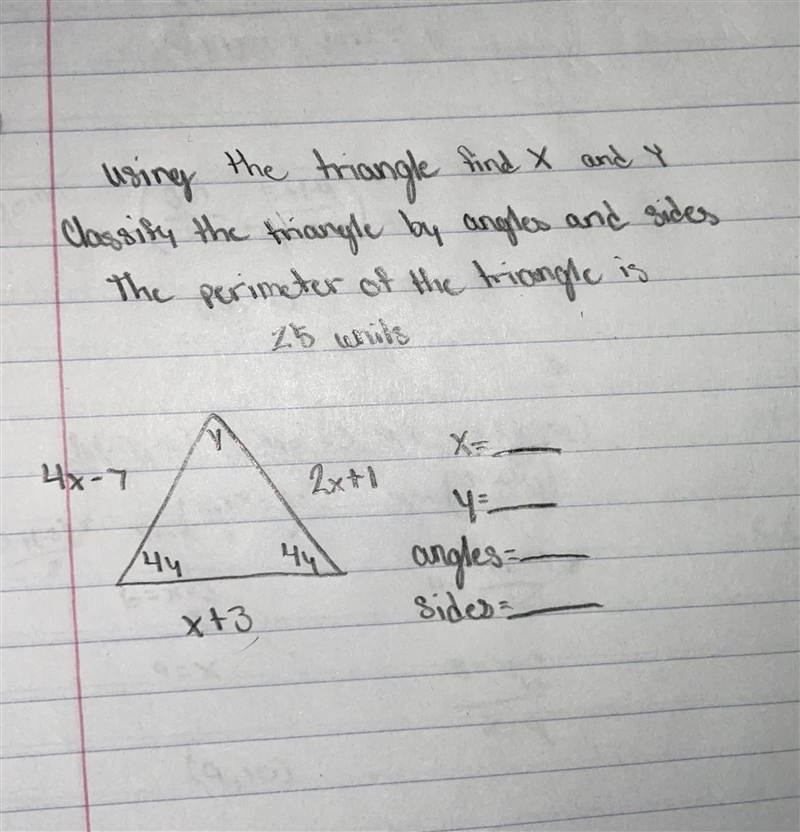 using the triangle find X and Y
Classify the triangle by angles and sides
The perimeter of the triangle is
25 units
y
4x-7
2x+1
4y
4y
x+3
x=
y=
angles=
sides=